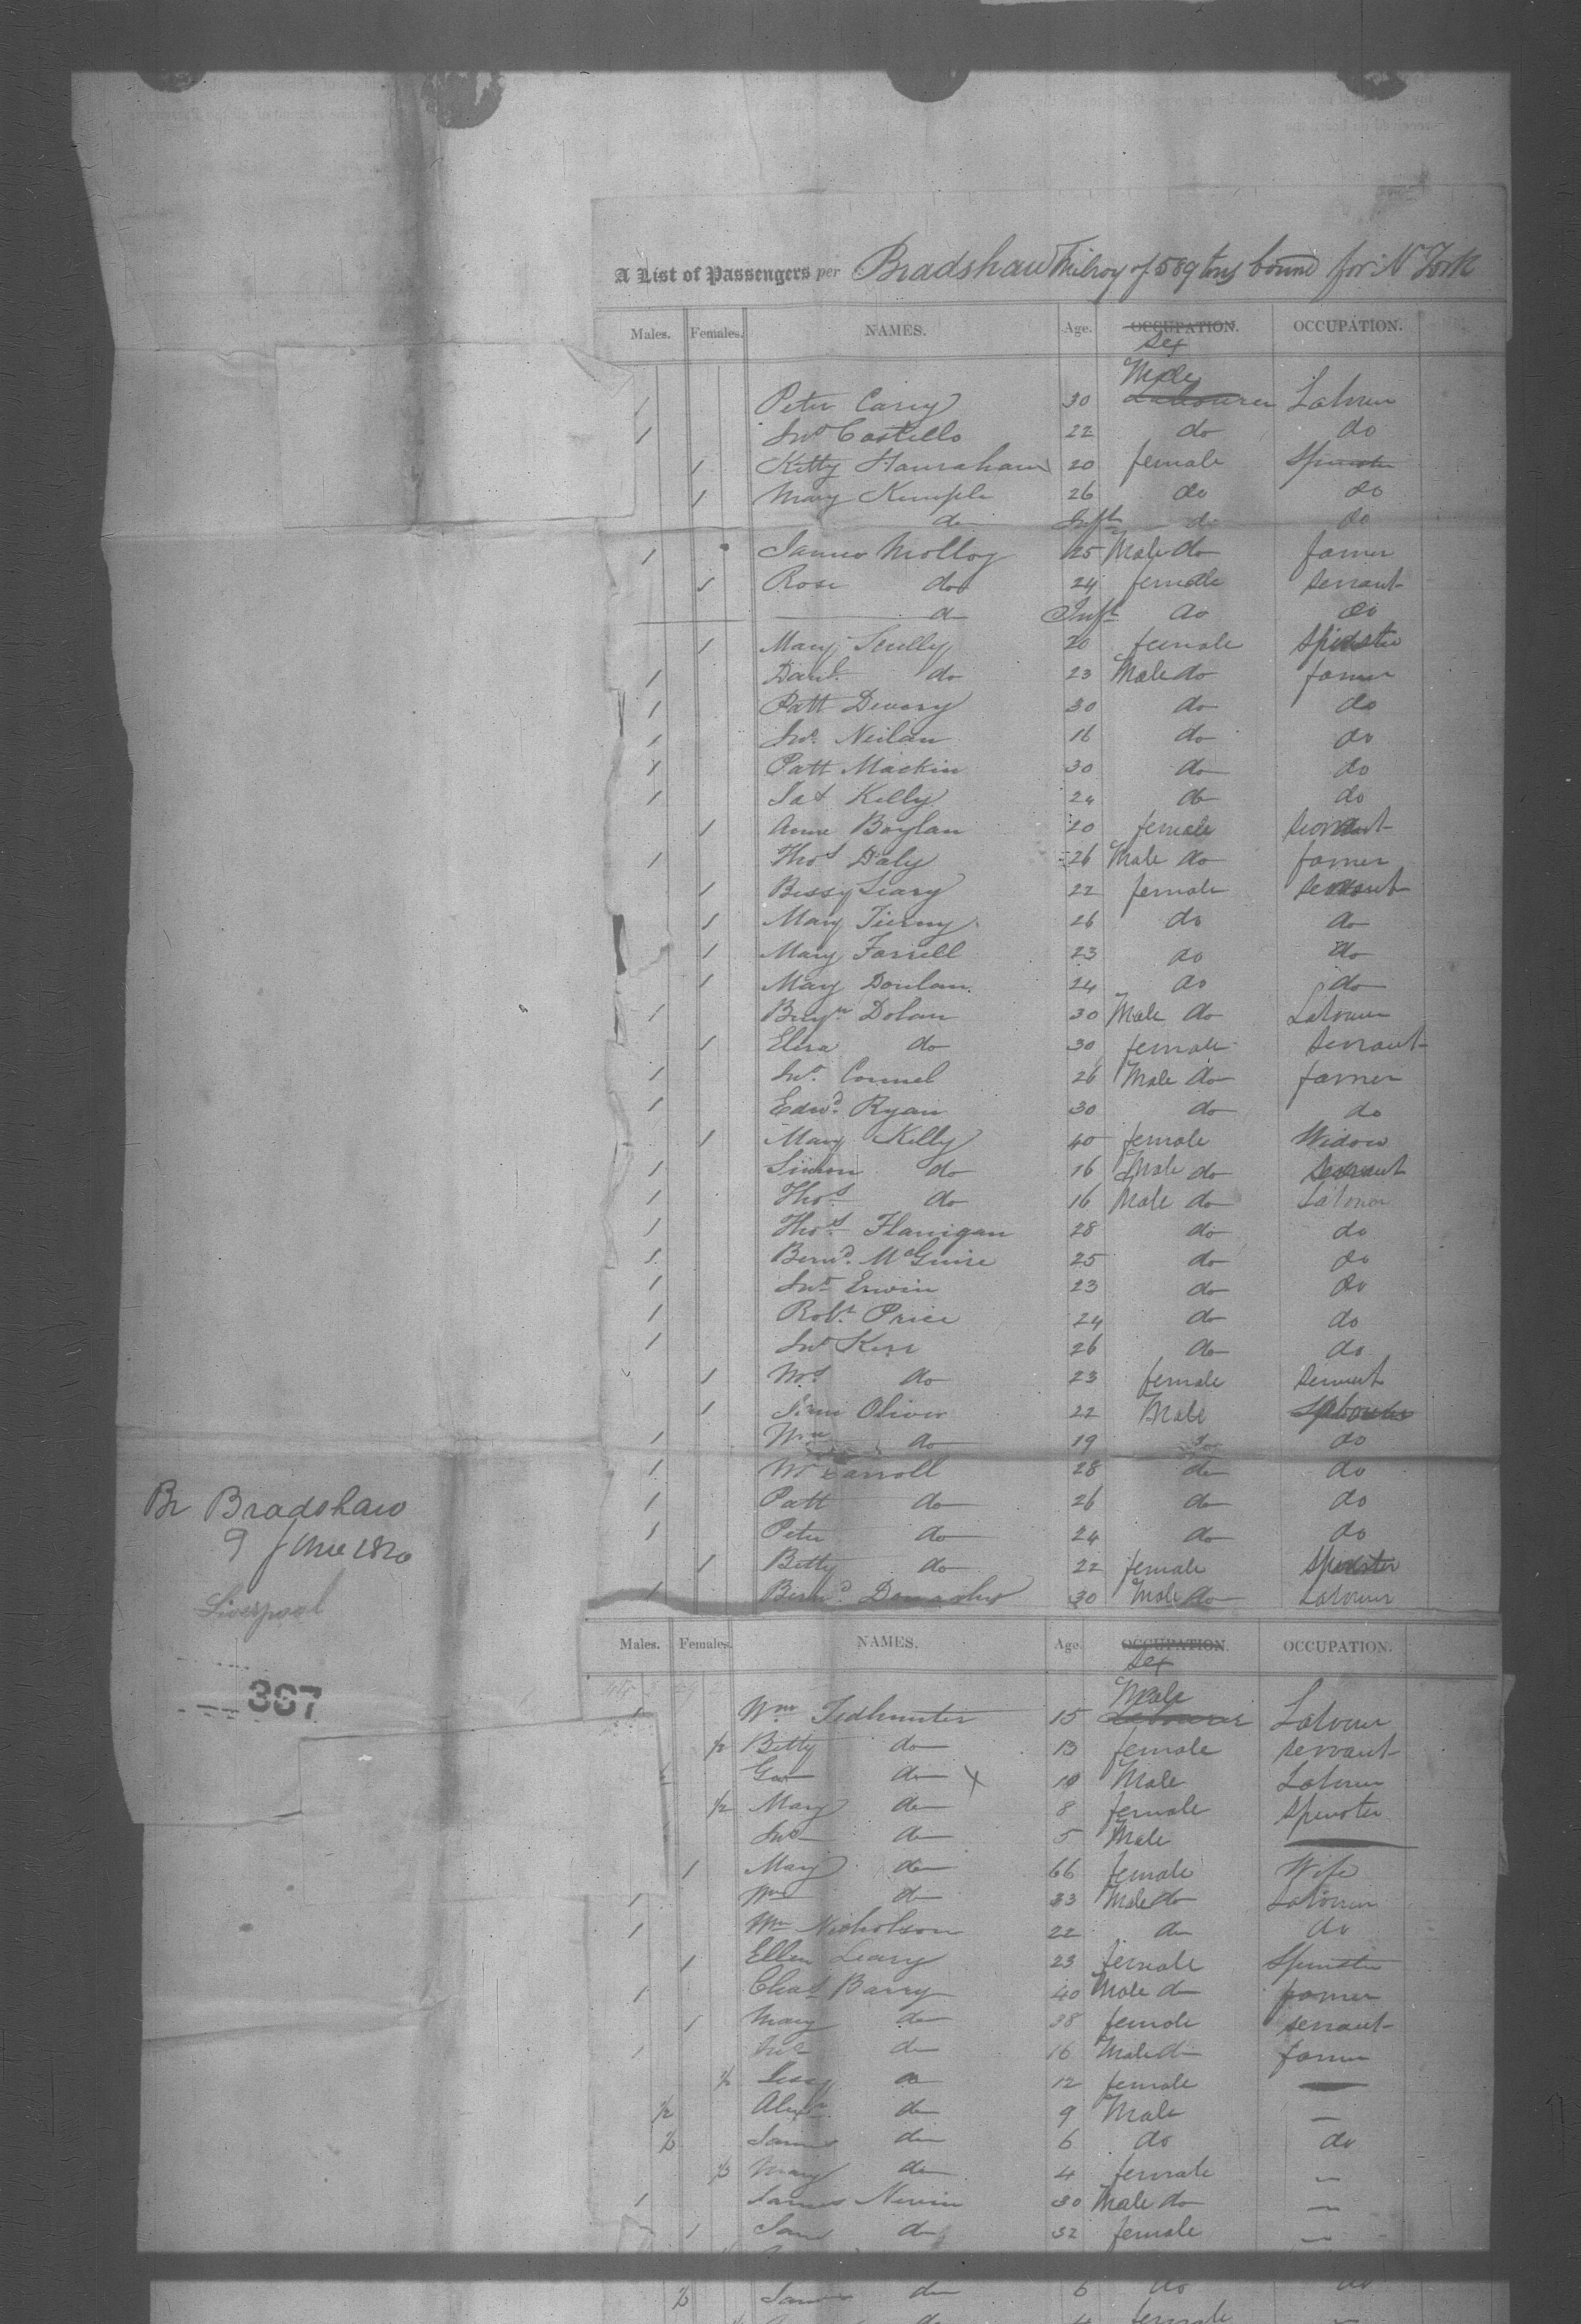 A List of Passengers per Bradshaw of 589 tons bound for N York
Males. Females. NAMES. Age. OCCUPATION. OCCUPATION.
Sex
Male
1 Peter Carey 30 Labourer Labourer
1 Jno Costello 22 do do
1 Kitty Hanrahan 20 female Spinster
1 Mary Kemple 26 do do
do Inft do do
1 James Molloy 25 Male do farmer
1 Rose do 24 female servant
do Inft do do
1 Mary Scully 20 female Spinster
1 Danl do 23 Male do farmer
1 Patt Devery 30 do do
1 Jno. Neilan 16 do do
1 Patt Mackin 30 do do
1 Jas Kelly 24 do do
1 Anne Boylan 20 female servant
1 Thos Daly 26 Male do farmer
1 Bessy Leary 22 female servant
1 Mary Tierny 26 do do
1 Mary Farrell 23 do do
1 Mary Donlan 24 do do
1 Benjn Dolan 30 Male do Labourer
1 Eliza do 30 female servant
1 Jno. Connel 26 Male do farmer
1 Edwd. Ryan 30 do do
1 Mary Kelly 40 female Widow
1 Simon do 16 Male do servant
1 Thos do 16 Male do Labourer
1 Thos Flanigan 28 do do
1 Bernd. McGuire 25 do do
1 Jno Erwin 23 do do
1 Robt. Price 24 do do
1 Jno Kerr 26 do do
1 Mrs do 23 female servant
1 Oliver 22 Male Labourer
1 Wm do 19 do do
1 Carroll 28 do do
1 Patt do 26 do do
Br Bradshaw
1 Peter do 24 do do
9 June 1820
1 Betty do 22 female Spinster
Liverpool
1 Bernd. 30 Male do Labourer
Males. Females. NAMES. Age. OCCUPATION. OCCUPATION.
Sex
387
Male
1 Wm Tedhunter 15 Labourer Labourer
1/2 Betty do 13 female servant
Geo do X 10 Male Labourer
1/2 Mary do 8 female Spinster
Jno do 5 Male
1 Mary do 66 female Wife
1 Wm do 33 Male do Labourer
1 Wm Nicholson 22 do do
1 Ellen Leary 23 female Spinster
1 Chas Barry 40 Male do farmer
1 Mary do 38 female servant
1 Jno do 16 Male do farmer
1/2 do 12 female
1/2 Alexr do 9 Male
1/2 James do 6 do do
1/2 Mary do 4 female
1 James Nevin 30 Male do
1 Jane do 32 female
1/2 James do 6 do do
do 4 female